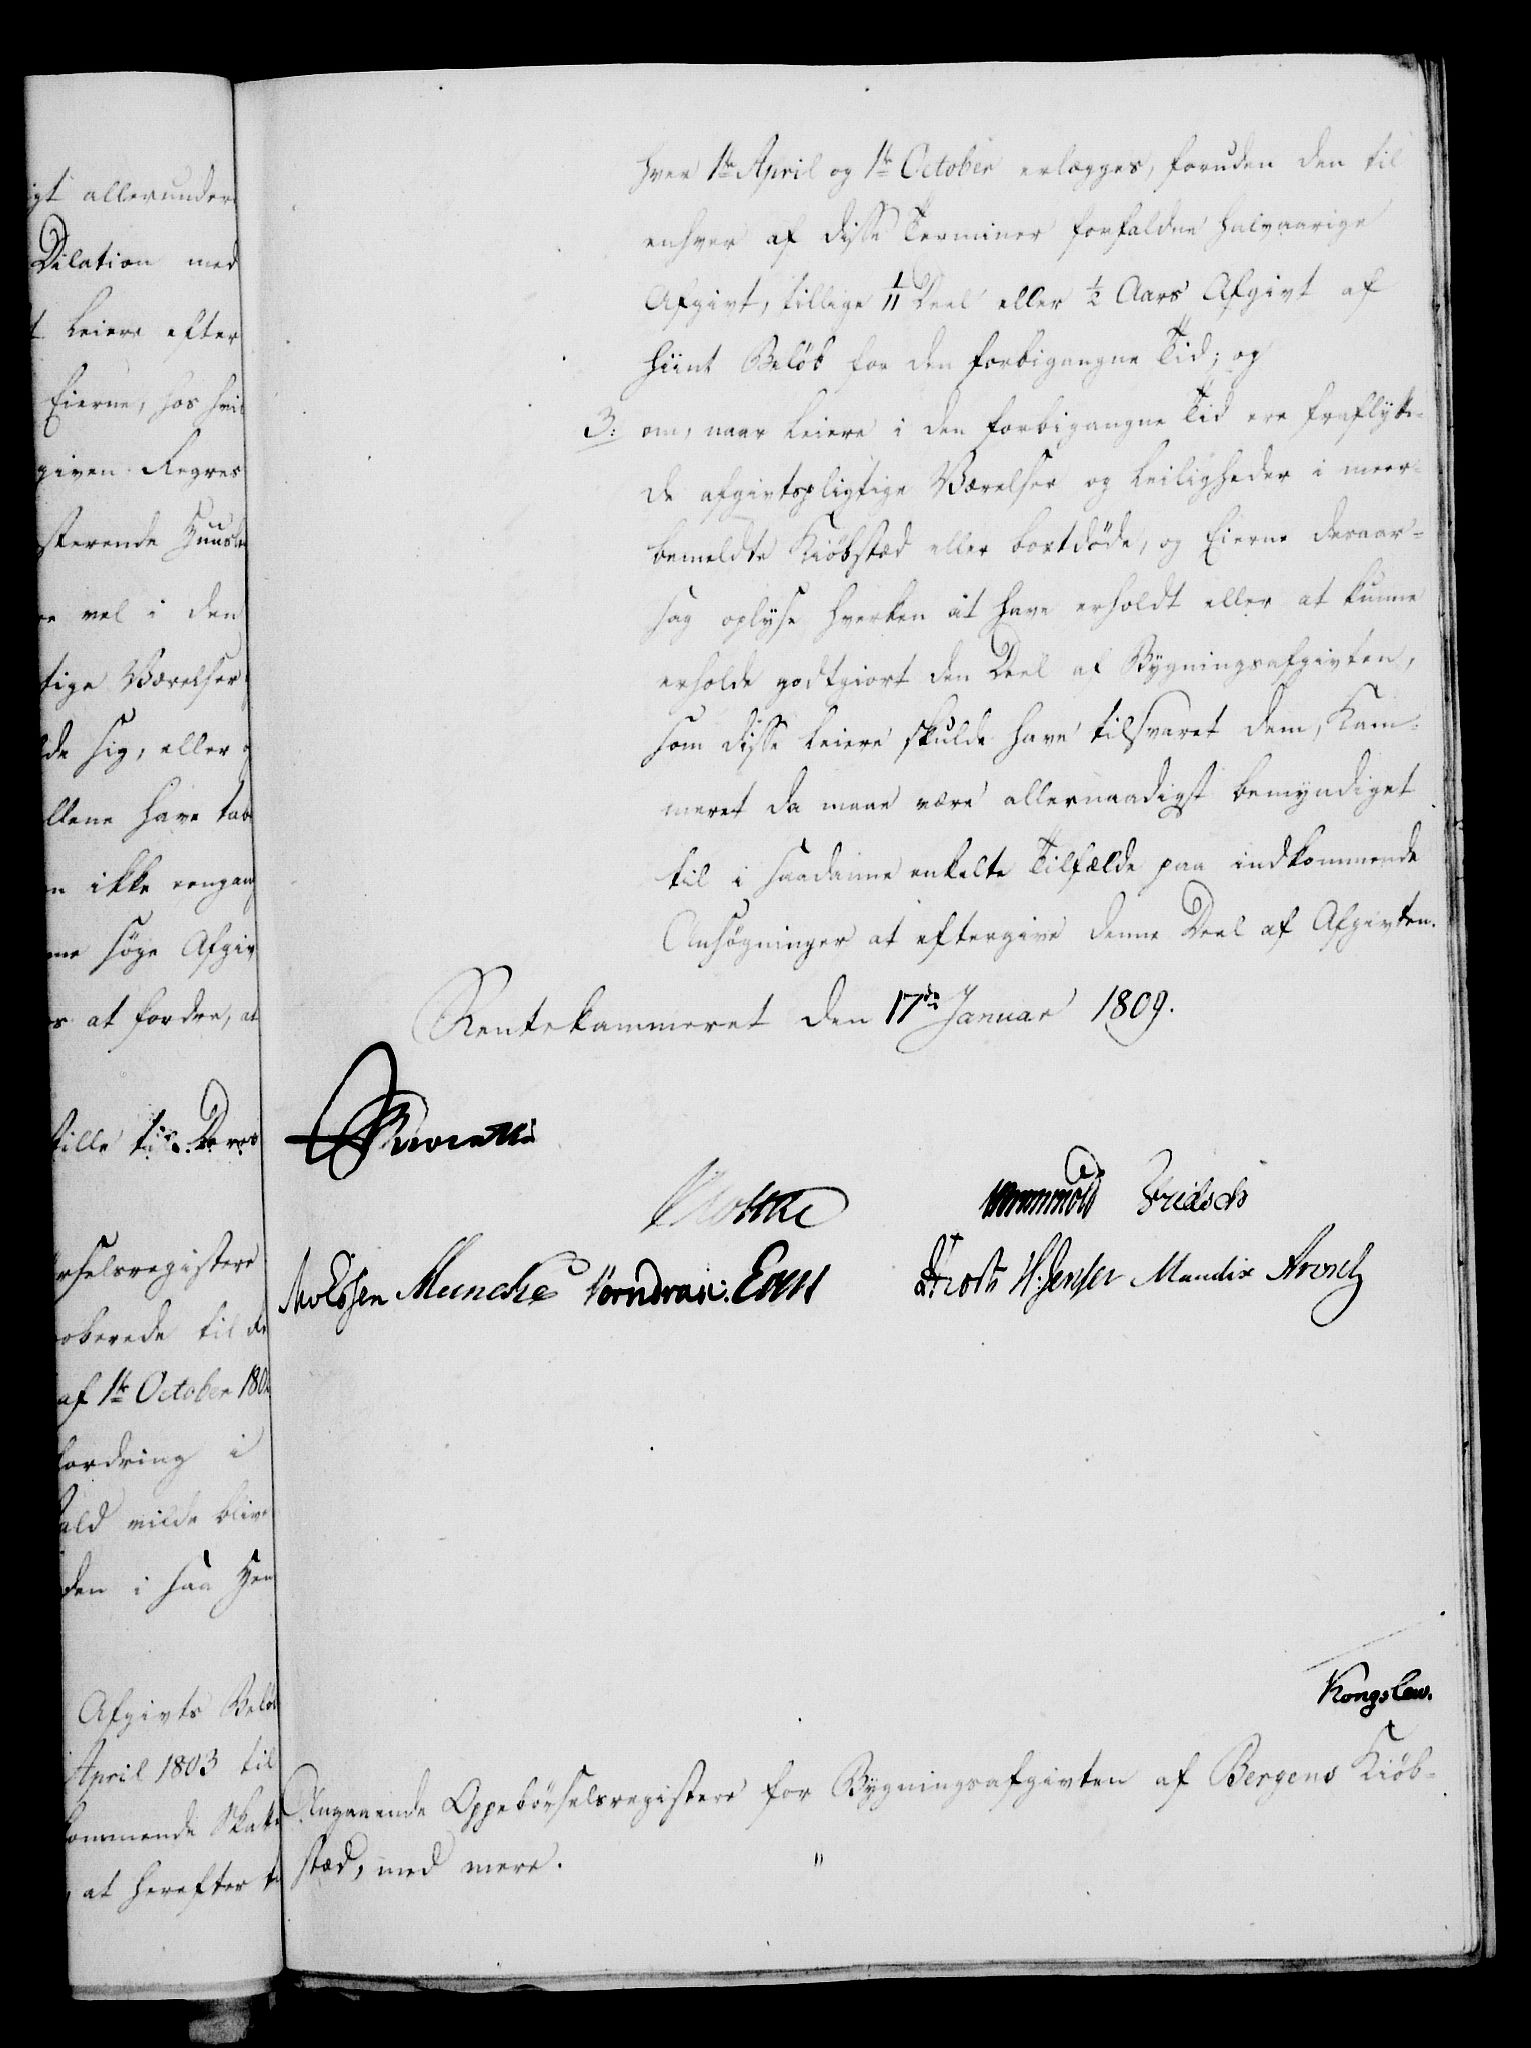 igt allerunder
Dilation med
t Leiere efter
Eierne, hos hvil
given Regres
sterende Huusle
re vel i den
tige Værelser
lde sig, eller
llene have tab
n ikke eengang
søge Afgiv
s at fordre, at
stille til Deres
rselsregistere
af 1te October 180
fordring i
vilde blive
den i saa Hen
Afgivts Beløb
April 1803 til
kommende Skatte
, at herefter
hver 1te April og 1te October erlægges, foruden den til
enhver af disse Terminer forfaldne halvaarige
Afgivt, tillige 1/11 Deel eller ½ Aars Afgivt af
hiint Beløb for den forbigangne Tid; og
3: om, naar Leiere i den forbigangne Tid ere fraflytte-
de afgivtspligtige Værelser og Leiligheder i meer-
bemeldte Kiøbstæd eller bortdøde, og Eierne deraar-
sag oplyse hverken at have erholdt eller at kunne
erholde godtgiort den Deel af Bygningsafgivten,
som disse Leiere skulde have tilsvaret dem, Kam-
meret da maae være allernaadigst bemyndiget
til i saadanne enkelte Tilfælde paa indkommende
Ansøgninger at eftergive denne Deel af Afgivten.
Rentekammeret den 17de Januar 1809.
Reventlow
Moltke Wormskiold Fridsch
Knudsen Muncke Vorndran. Egen Stroth H. Jensen Mandix Arorch
Kongslew.
Angaaende Oppebørselsregistere for Bygningsafgivten af Bergens Kiøb-
stæd, med mere.